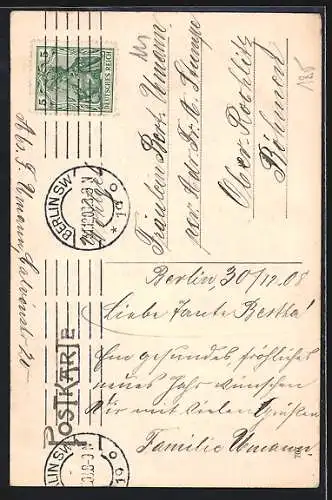 5 5
DEUTSCHES REICH
BERLIN SW
19
POSTKARTE
BERLIN SW
19
Fräulein Berta Umann
per Adr. Fr. A. Stumpe
Ober-Rochlitz
Böhmen
Abs. F. Umann, Calvinstr. 20
Berlin, 30/12.08
Liebe Tante Bertha!
Ein gesundes, fröhliches
neues Jahr wünschen
Dir mit vielen Grüßen
Familie Umann.